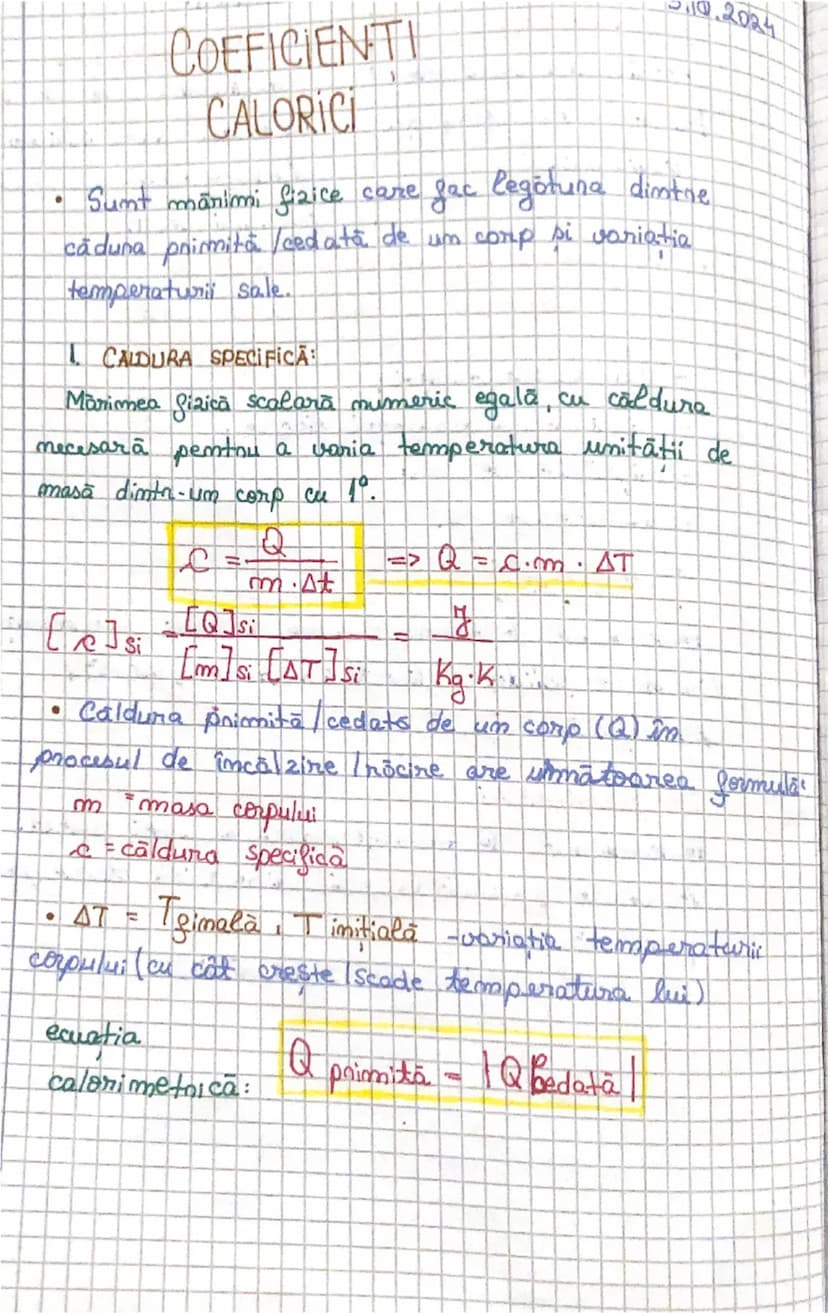 .10.2024
COEFICIENȚI
CALORICI
• Sunt mărimi fizice care fac legătura dintre
căldura primită/cedată de un corp și variația
temperaturii sale.
1. CALDURA SPECIFICĂ:
Mărimea fizică scalară numeric egală, cu căldura
necesară pentru a varia temperatura unității de
masă dintr-un corp cu 1°.
c = Q / m · Δt => Q = c · m · ΔT
[c]si = [Q]si / [m]si [ΔT]si = J / Kg·K
• Căldura primită/cedată de un corp (Q) în
procesul de încălzire/răcire are următoarea formulă:
m = masa corpului
c = căldura specifică
• ΔT = T finală, T inițială - variația temperaturii
corpului (cu cât crește/scade temperatura lui)
ecuația
calorimetrică: Q primită = |Q cedată|